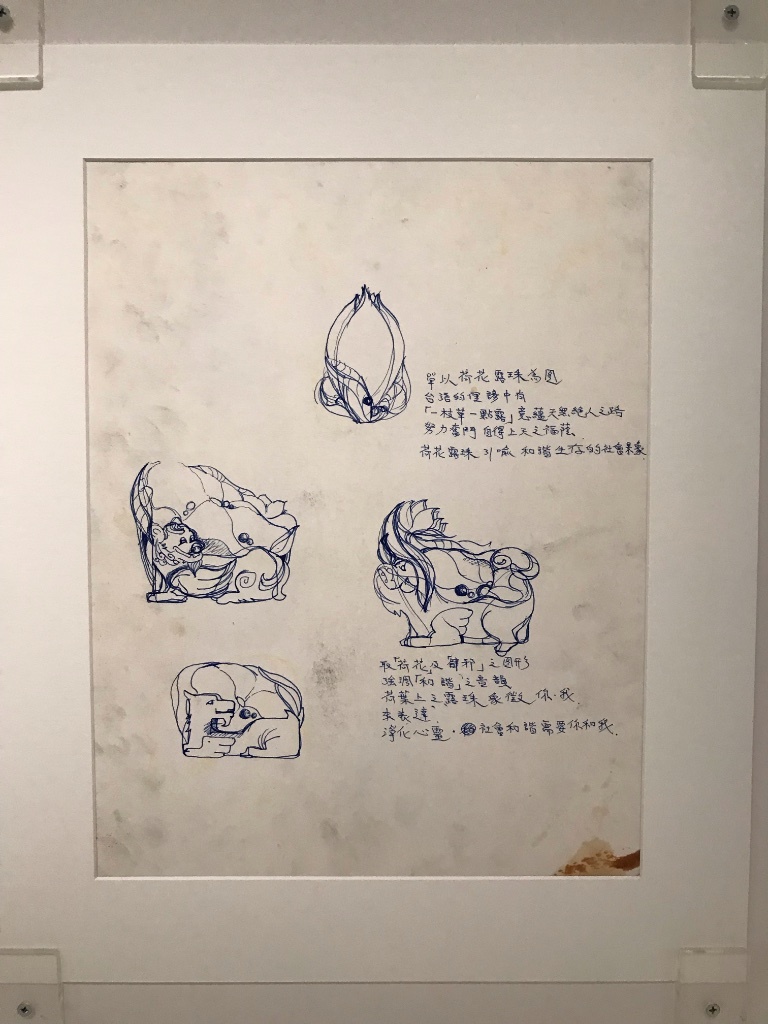 單以荷花露珠為圖
台語的俚語中有
「一枝草一點露」意蘊天無絕人之路
努力奮鬥自得上天之福蔭
荷花露珠引喻和諧生存的社會景象
取「荷花」及「辟邪」之圖形
強調「和諧」之意韻
荷葉上之露珠象徵你、我
來表達
淨化心靈，社會和諧需要你和我.